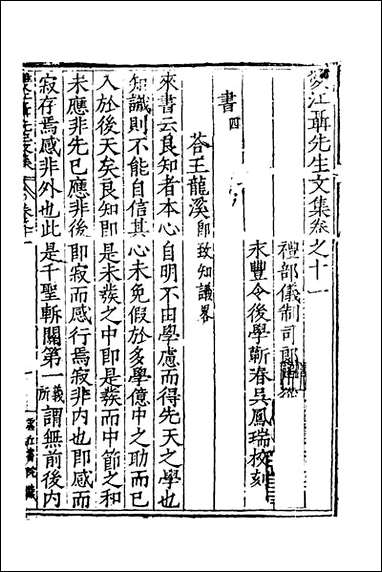 雙江聶先生文集卷之十一
禮部儀制司郎
永豐令後學蘄春吳鳳瑞校刻
書四
荅王龍溪即致知議畧
來書云良知者本心自明不由學慮而得先天之學也
知識則不能自信其心未免假於多學億中之助而已
入於後天矣良知即是未發之中即是發而中節之和
未應非先已應非後即寂而感行焉寂非內也即感而
寂存焉感非外也此是千聖斬關第一義所謂無前後內